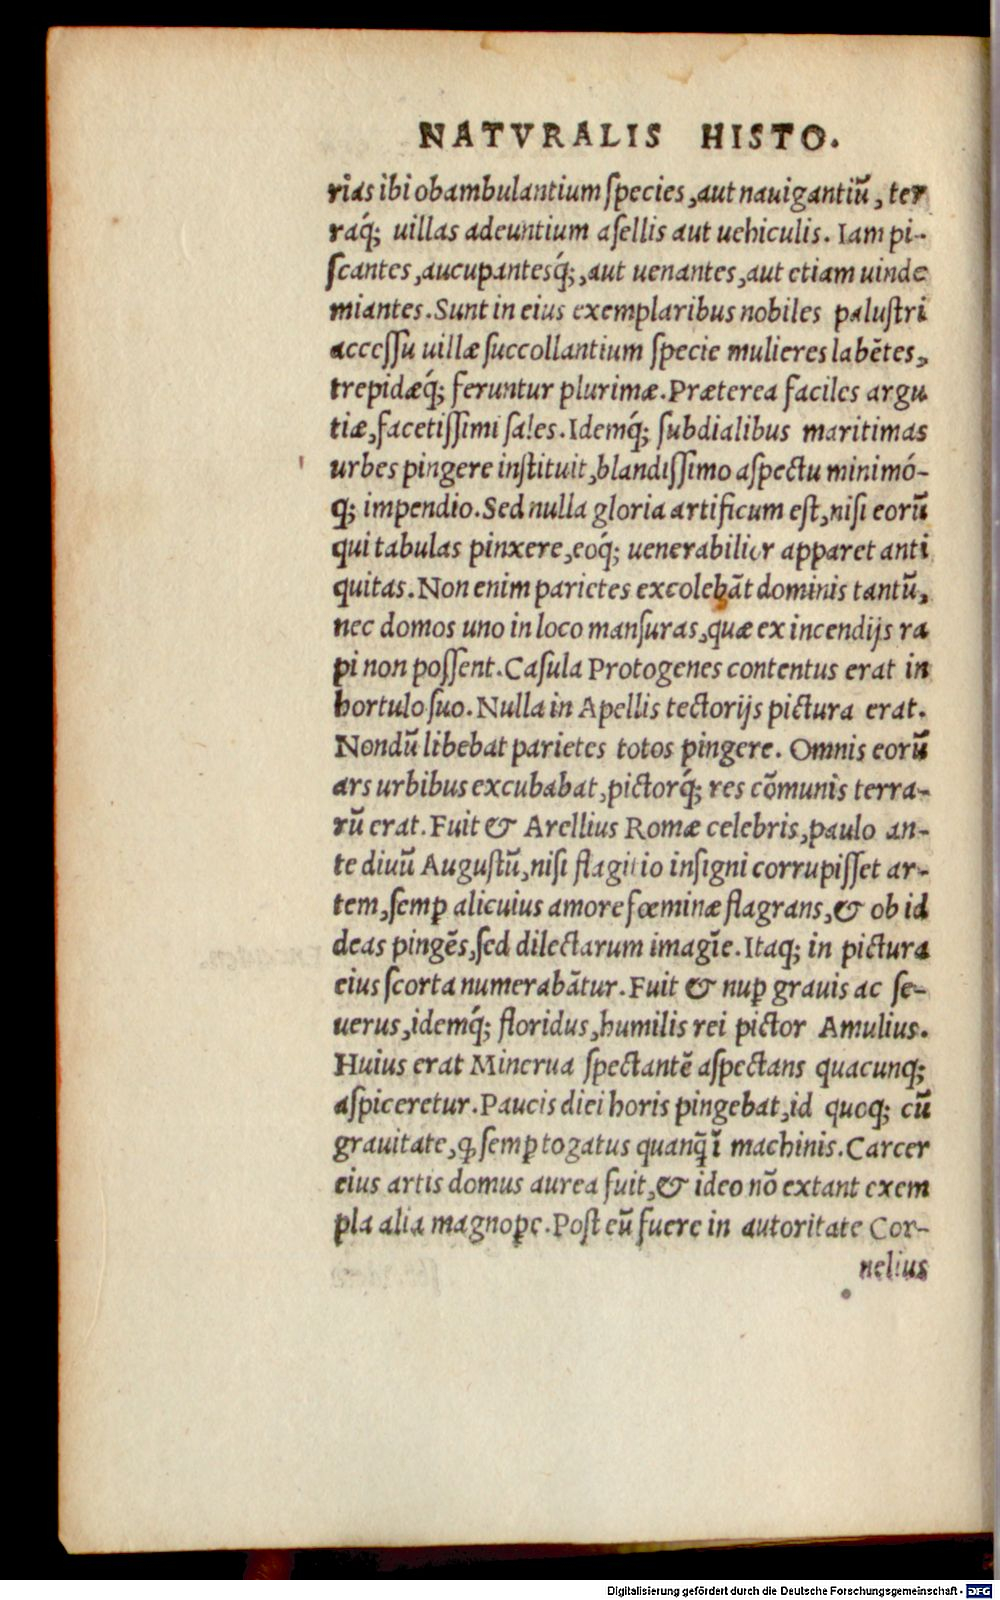 NATVRALIS HISTO.
rias ibi obambulantium ſpecies, aut nauigantiũ, ter
raq́; uillas adeuntium aſellis aut uehiculis. Iam pi-
ſcantes, aucupantesq́;, aut uenantes, aut etiam uinde
miantes. Sunt in eius exemplaribus nobiles paluſtri
acceſſu uillæ ſuccollantium ſpecie mulieres labẽtes,
trepidæq́; feruntur plurimæ. Præterea faciles argu
tiæ, facetiſſimi ſales. Idemq́; ſubdialibus maritimas
urbes pingere inſtituit, blandiſſimo aſpectu minimó-
q; impendio. Sed nulla gloria artificum eſt, niſi eorũ
qui tabulas pinxere, eoq́; uenerabilior apparet anti
quitas. Non enim parietes excolebãt dominis tantũ,
nec domos uno in loco manſuras, quæ ex incendijs ra
pi non poſſent. Caſula Protogenes contentus erat in
hortulo ſuo. Nulla in Apellis tectorijs pictura erat.
Nondũ libebat parietes totos pingere. Omnis eorũ
ars urbibus excubabat, pictorq́; res cõmunis terra-
rũ erat. Fuit & Arellius Romæ celebris, paulo an-
te diuũ Auguſtũ, niſi flagitio inſigni corrupiſſet ar-
tem, ſemꝑ alicuius amore fœminæ flagrans, & ob id
deas pingẽs, ſed dilectarum imagĩe. Itaq; in pictura
eius ſcorta numerabãtur. Fuit & nuꝑ grauis ac ſe-
uerus, idemq́; floridus, humilis rei pictor Amulius.
Huius erat Minerua ſpectantẽ aſpectans quacunq;
aſpiceretur. Paucis diei horis pingebat, id quoq; cũ
grauitate, ꝙ ſemꝑ togatus quanq̃ ĩ machinis. Carcer
eius artis domus aurea fuit, & ideo nõ extant exem
pla alia magnoꝑe. Poſt eũ fuere in autoritate Cor-
nelius
Digitalisierung gefördert durch die Deutsche Forschungsgemeinschaft - DFG